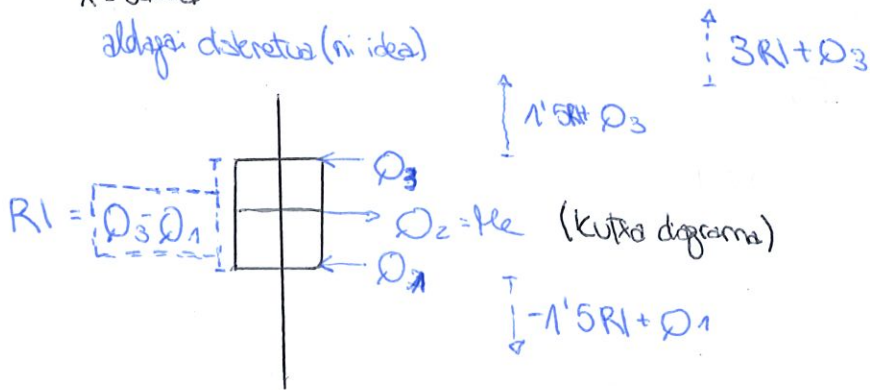 aldagai diskretua (ni idea)
3RI + Q3
1'5RI + Q3
Q3
RI = Q3 - Q1
Q2 = Me (Kutxa diagrama)
Q1
-1'5RI + Q1